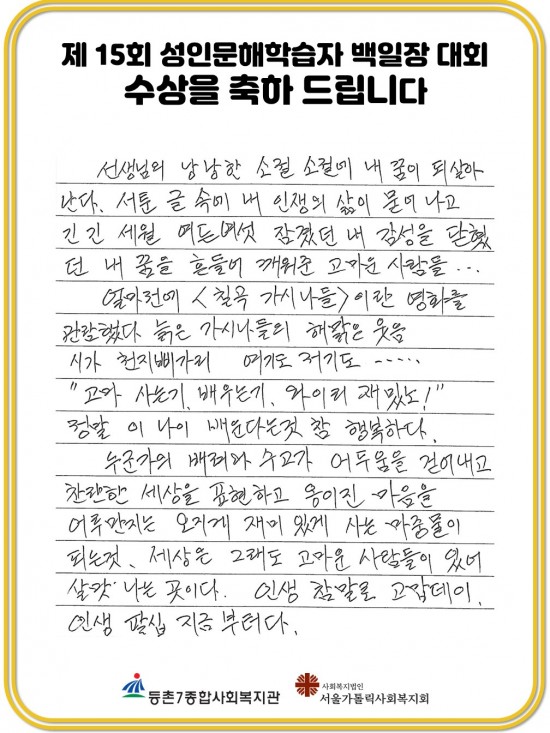 제 15회 성인문해학습자 백일장 대회
수상을 축하 드립니다
선생님의 낭낭한 소절 소절에 내 꿈이 되살아
난다. 서툰 글 속에 내 인생의 삶이 묻어 나고
긴긴 세월 여든여섯 잠겼던 내 감성을 닫혔
던 내 꿈을 흔들어 깨워준 고마운 사람들...
얼마전에 <칠곡 가시나들>이란 영화를
관람했다 늙은 가시나들의 해맑은 웃음
시가 천지삐까리 여기도 저기도 -----
"고마 사는기, 배우는기, 와이리 재밌노!"
정말 이 나이 배운다는것 참 행복하다.
누군가의 배려와 수고가 어두움을 걷어내고
찬란한 세상을 표현하고 옹이진 마음을
어루만지는 오지게 재미 있게 사는 마중물이
되는것. 세상은 그래도 고마운 사람들이 있어
살맛 나는 곳이다. 인생 참말로 고맙데이.
인생 팔십 지금 부터다.
등촌7종합사회복지관
사회복지법인
서울가톨릭사회복지회